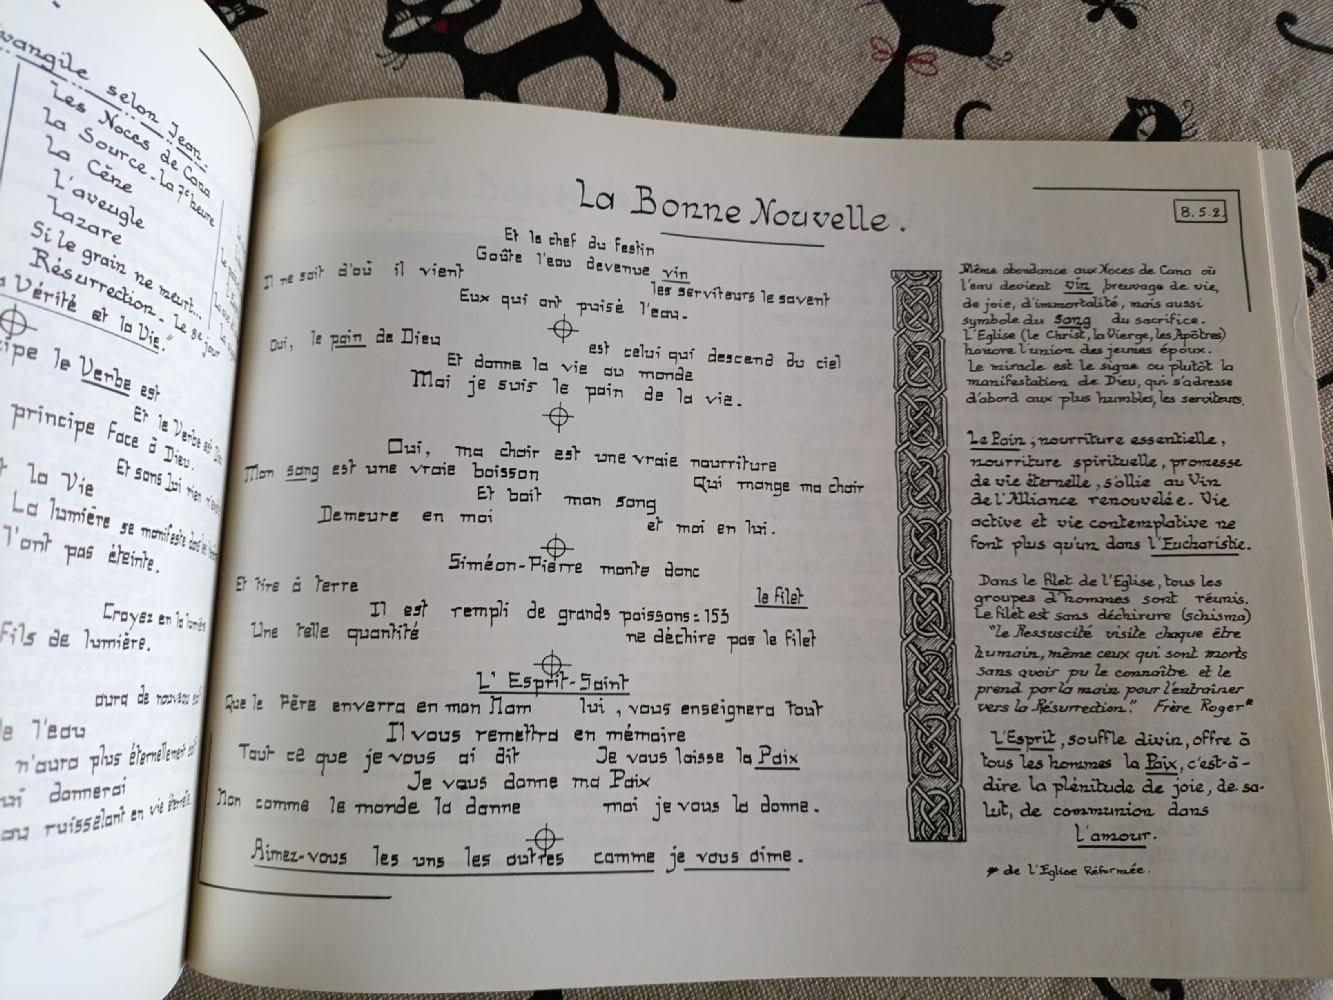 Evangile selon Jean.
Les Noces de Cana
La Source - la 7e heure
La Cène
L'aveugle
Lazare
Si le grain ne meurt...
Résurrection - Le
Vérité et la Vie."
le Verbe est
Et le Verbe
principe face à Dieu.
Et sans lui rien
la Vie
La lumière se manifeste dans les
l'ont pas éteinte.
Croyez en la lumière
Fils de lumière.
aura de nouveau soif
l'eau
n'aura plus éternellement soif
donnerai
ruisselant en vie éternelle.
La Bonne Nouvelle.
8.5.2
Et le chef du festin
Goûte l'eau devenue vin
Il ne sait d'où il vient
les serviteurs le savent
Eux qui ont puisé l'eau.
Oui, le pain de Dieu
est celui qui descend du ciel
Et donne la vie au monde
Moi je suis le pain de la vie.
Oui, ma chair est une vraie nourriture
Mon sang est une vraie boisson
Qui mange ma chair
Et boit mon sang
Demeure en moi
et moi en lui.
Siméon-Pierre monte donc
Et tire à terre
le filet
Il est rempli de grands poissons : 153
Une telle quantité
ne déchire pas le filet
L'Esprit-Saint
Que le Père enverra en mon Nom
lui, vous enseignera tout
Il vous remettra en mémoire
Tout ce que je vous ai dit
Je vous laisse la Paix
Je vous donne ma Paix
Non comme le monde la donne
moi je vous la donne.
Aimez-vous les uns les autres comme je vous aime.
Même abondance aux Noces de Cana où
l'eau devient vin, breuvage de vie,
de joie, d'immortalité, mais aussi
symbole du sang du sacrifice.
L'Eglise (le Christ, la Vierge, les Apôtres)
honore l'union des jeunes époux.
Le miracle est le signe ou plutôt la
manifestation de Dieu, qui s'adresse
d'abord aux plus humbles, les serviteurs.
Le Pain, nourriture essentielle,
nourriture spirituelle, promesse
de vie éternelle, s'allie au Vin
de l'Alliance renouvelée. Vie
active et vie contemplative ne
font plus qu'un dans l'Eucharistie.
Dans le filet de l'Eglise, tous les
groupes d'hommes sont réunis.
Le filet est sans déchirure (schisma)
"le Ressuscité visite chaque être
humain, même ceux qui sont morts
sans avoir pu le connaître et le
prend par la main pour l'entraîner
vers la Résurrection." Frère Roger*
L'Esprit, souffle divin, offre à
tous les hommes la Paix, c'est-à-
dire la plénitude de joie, de sa-
lut, de communion dans
l'amour.
* de l'Eglise Réformée.